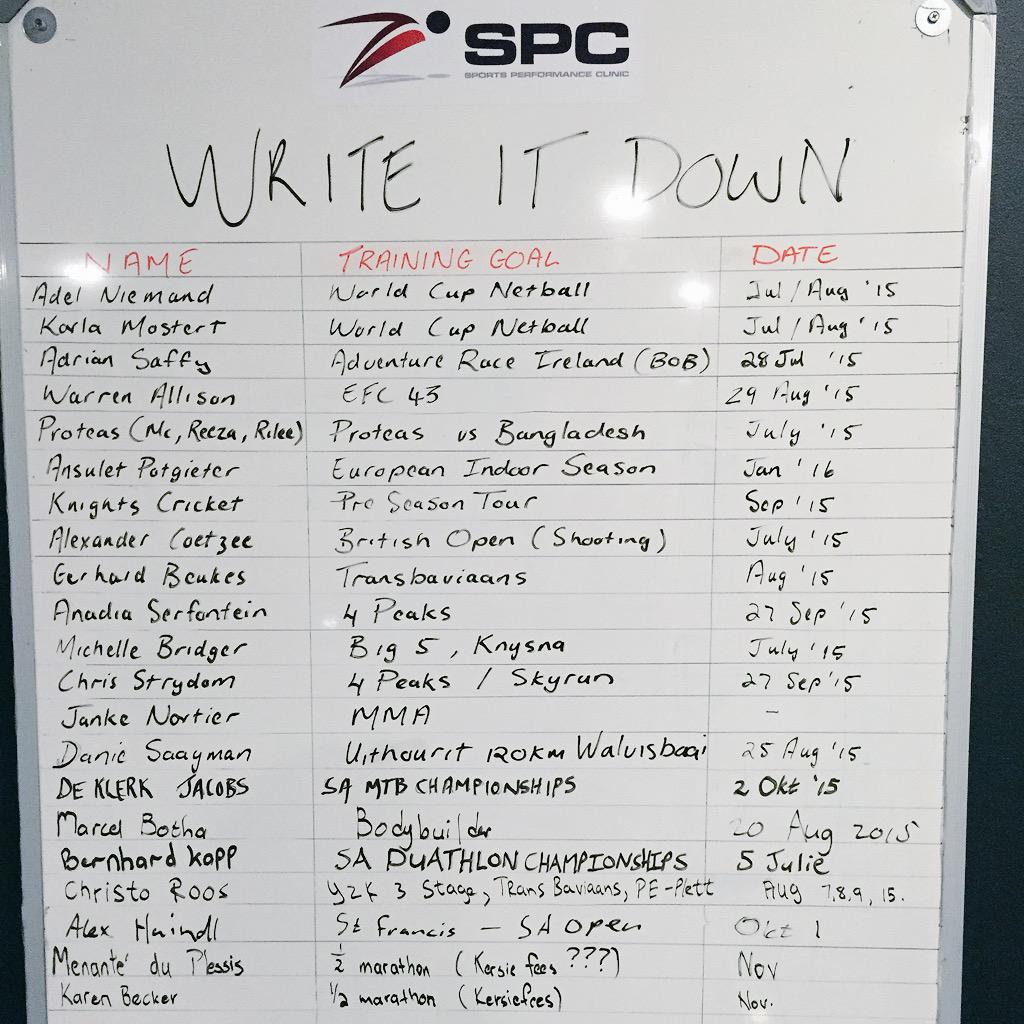 SPC
SPORTS PERFORMANCE CLINIC
WRITE IT DOWN
NAME TRAINING GOAL DATE
Adel Niemand World Cup Netball Jul/Aug '15
Karla Mostert World Cup Netball Jul/Aug '15
Adrian Saffy Adventure Race Ireland (BOB) 28 Jul '15
Warren Allison EFC 43 29 Aug '15
Proteas (Mc, Reeza, Rilee) Proteas vs Bangladesh July '15
Ansulet Potgieter European Indoor Season Jan '16
Knights Cricket Pre Season Tour Sep '15
Alexander Coetzee British Open (Shooting) July '15
Gerhard Beukes Transbaviaans Aug '15
Anadia Serfontein 4 Peaks 27 Sep '15
Michelle Bridger Big 5, Knysna July '15
Chris Strydom 4 Peaks / Skyrun 27 Sep '15
Janke Nortier MMA -
Danie Saayman Uithourit 120km Walvisbaai 25 Aug '15
DE KLERK JACOBS SA MTB CHAMPIONSHIPS 2 Okt '15
Marcel Botha Bodybuilder 20 Aug 2015
Bernhard Kopp SA DUATHLON CHAMPIONSHIPS 5 Julie
Christo Roos Y2K 3 Stage, Trans Baviaans, PE-Plett Aug 7,8,9, 15.
Alex Haindl St Francis - SA Open Okt 1
Menanté du Plessis ½ marathon (Kersie fees ???) Nov
Karen Becker ½ marathon (Kersiefees) Nov.